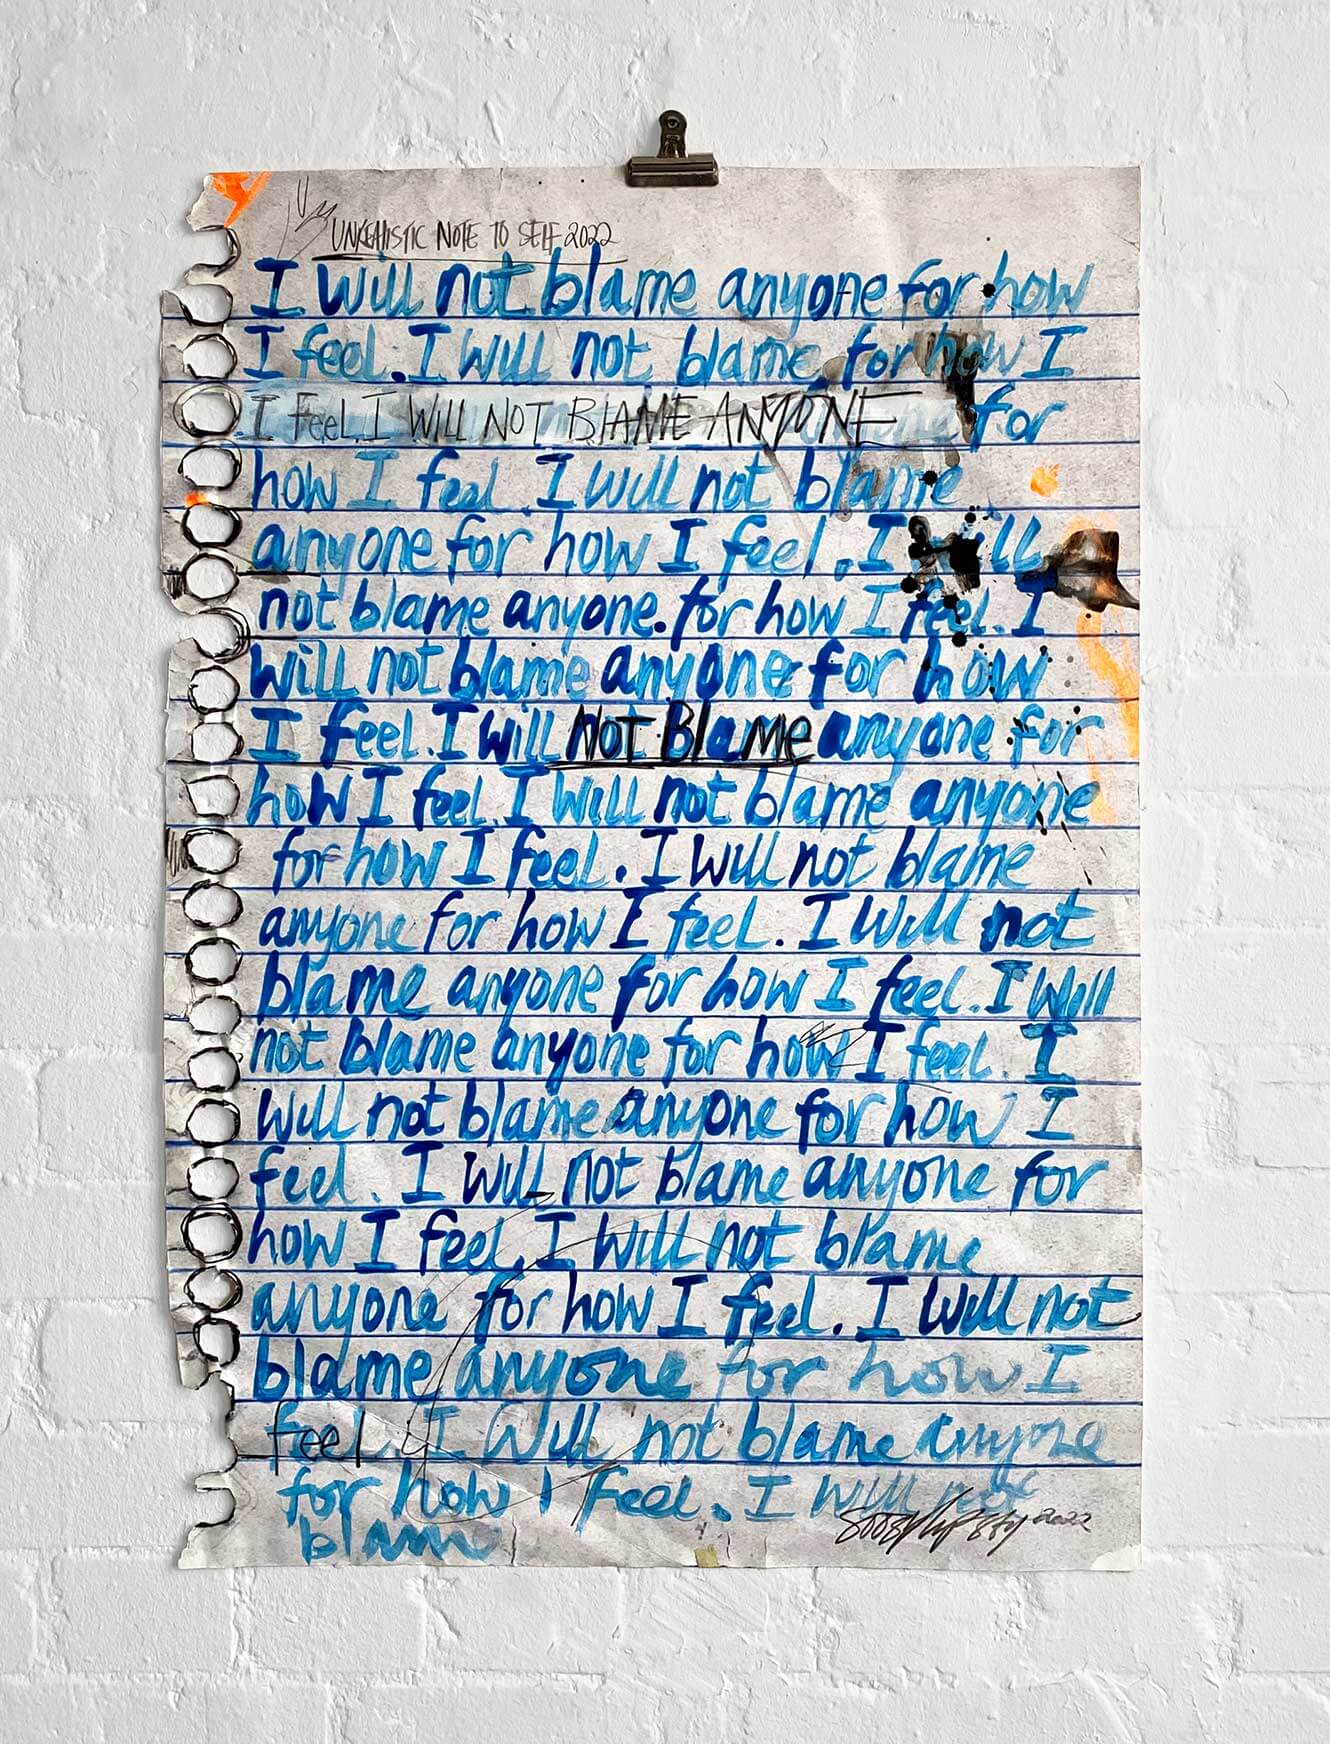 UNREALISTIC NOTE TO SELF 2022
I will not blame anyone for how
I feel. I will not blame for how I
I feel. I WILL NOT BLAME ANYONE for
how I feel. I will not blame
anyone for how I feel. I will
not blame anyone. for how I feel. I
will not blame anyone for how
I feel. I will NOT BLAME anyone for
how I feel. I will not blame anyone
for how I feel. I will not blame
anyone for how I feel. I will not
blame anyone for how I feel. I will
not blame anyone for how I feel. I
will not blame anyone for how I
feel. I will not blame anyone for
how I feel. I will not blame
anyone for how I feel. I will not
blame anyone for how I
feel. I will not blame anyone
for how I feel. I will not
blame
2022